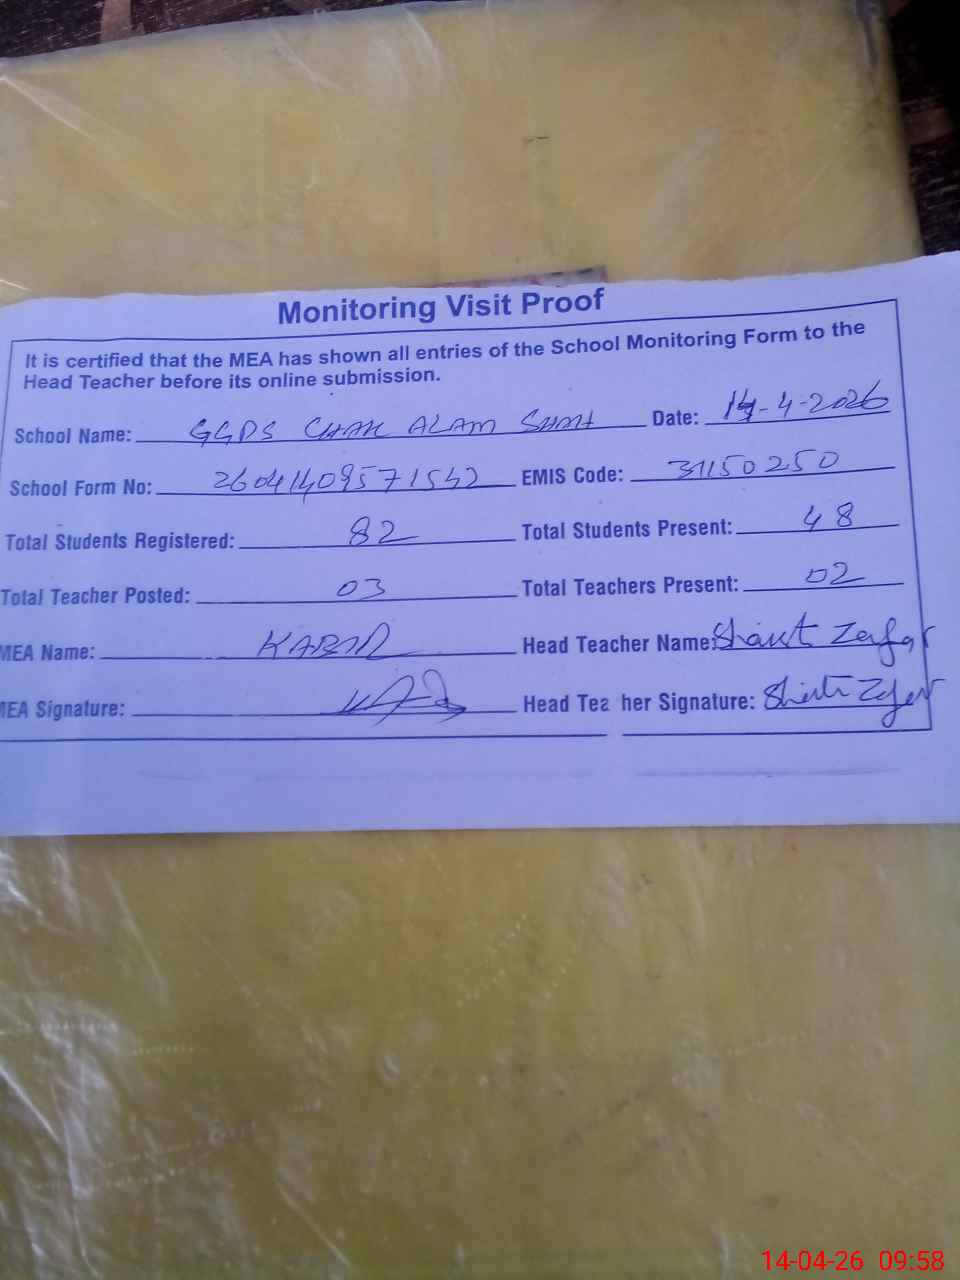 Monitoring Visit Proof
It is certified that the MEA has shown all entries of the School Monitoring Form to the
Head Teacher before its online submission.
School Name: GGPS CHAK ALAM Date: 14-4-2026
School Form No: 26041409571542 EMIS Code: 31150250
Total Students Registered: 82 Total Students Present: 48
Total Teacher Posted: 03 Total Teachers Present: 02
MEA Name: KABIR Head Teacher Name: Zafar
MEA Signature: Head Tea her Signature: Zafar
14-04-26 09:58